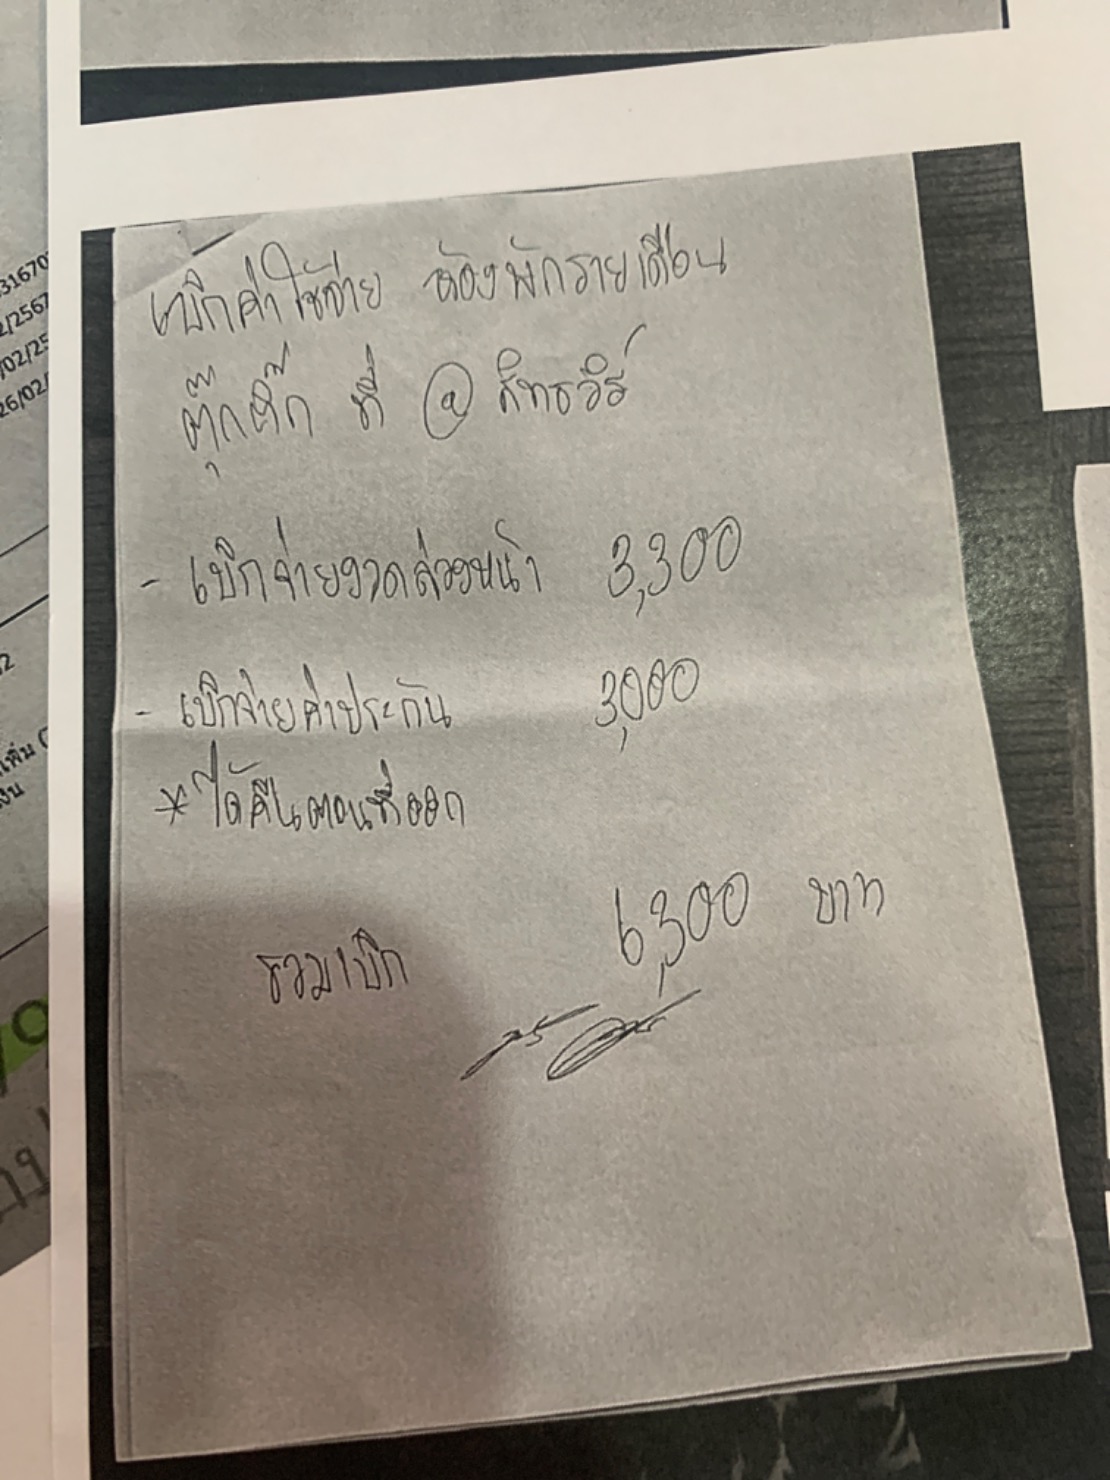 เบิกค่าใช้จ่าย ห้องพักรายเดือน
ตุ๊กติ๊ก ที่ @ สิทธวีร์
- เบิกจ่ายงวดล่วงหน้า 3,300
- เบิกจ่ายค่าประกัน 3,000
* ได้คืนตอนที่ออก
รวมเบิก 6,300 บาท
31670
2/2567
/02/25
26/02/